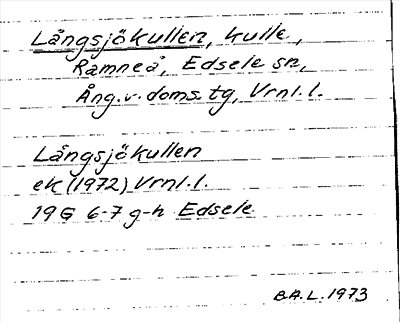 Långsjökullen, kulle,
Ramneå, Edsele sn,
Ång.v. doms.tg, Vrnl.l.
Långsjökullen
ek (1972) Vrnl.l.
19G 6-7 g-h Edsele.
B.A.L. 1973